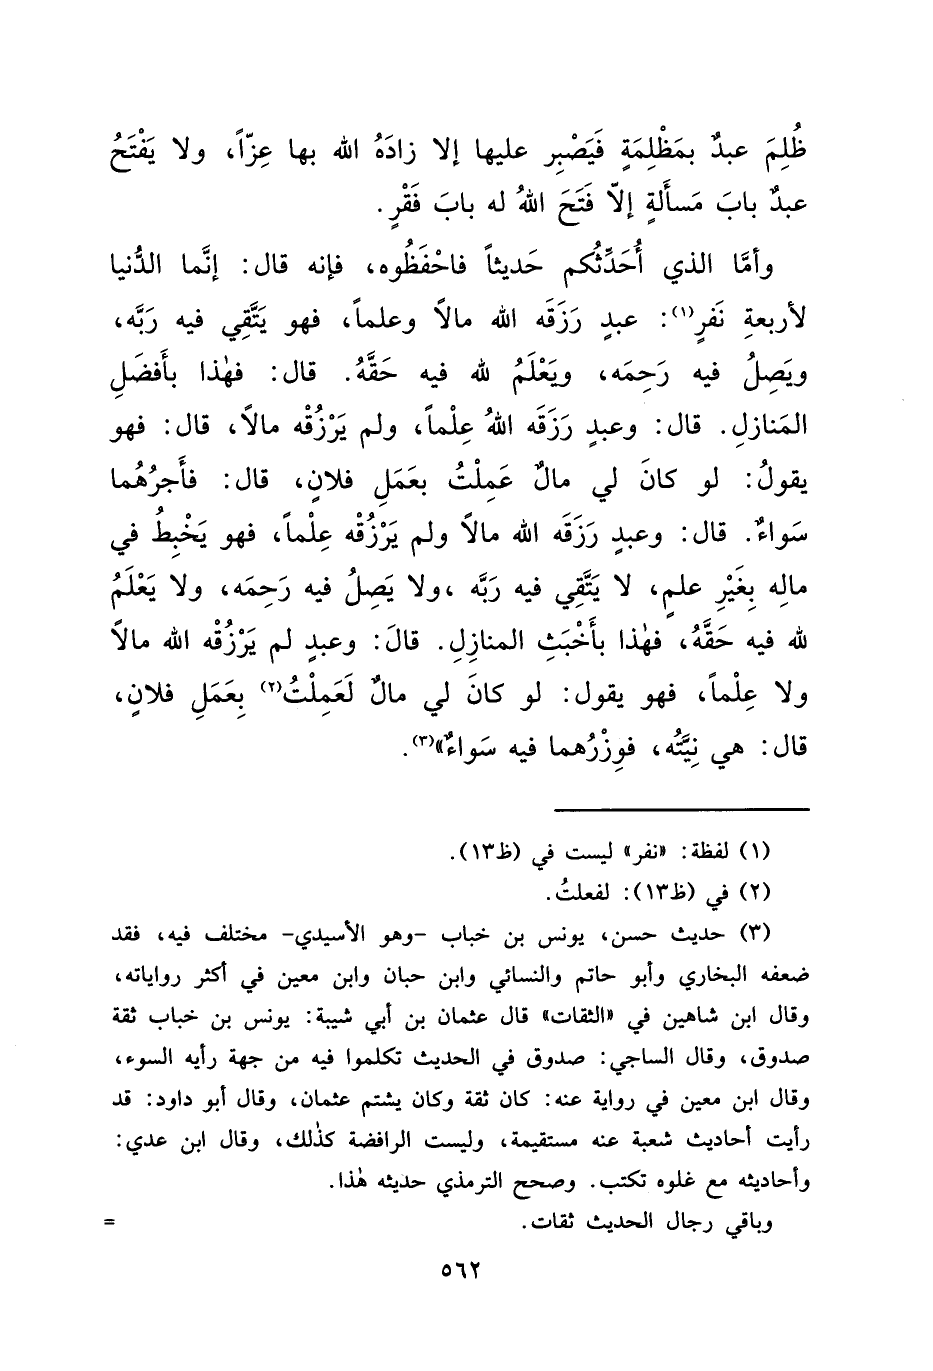 ظُلِمَ عبدٌ بمَظْلِمَةٍ فَيَصْبِر عليها إلا زادَهُ الله بها عِزّاً، ولا يَفْتَحُ
عبدٌ بابَ مَسأَلةٍ إلاّ فَتَحَ اللهُ له بابَ فَقْرٍ.
وأمَّا الذي أُحَدِّثُكم حَديثاً فاحْفَظُوه، فإنه قال: إنَّما الدُّنيا
لأربعةِ نَفرٍ(١): عبدٍ رَزَقَه الله مالاً وعلماً، فهو يَتَّقِي فيه رَبَّه،
ويَصِلُ فيه رَحِمَه، ويَعْلَمُ لله فيه حَقَّهُ. قال: فهٰذا بأَفضَلِ
المَنازلِ. قال: وعبدٍ رَزَقَه اللهُ عِلْماً، ولم يَرْزُقْه مالاً، قال: فهو
يقولُ: لو كانَ لي مالٌ عَمِلْتُ بعَمَلِ فلانٍ، قال: فأَجرُهُما
سَواءٌ. قال: وعبدٍ رَزَقَه الله مالاً ولم يَرْزُقْه عِلْماً، فهو يَخْبِطُ في
مالِه بِغَيْرِ علمٍ، لا يَتَّقِي فيه رَبَّه ،ولا يَصِلُ فيه رَحِمَه، ولا يَعْلَمُ
لله فيه حَقَّهُ، فهٰذا بأَخْبَثِ المنازِلِ. قالَ: وعبدٍ لم يَرْزُقْه الله مالاً
ولا عِلْماً، فهو يقول: لو كانَ لي مالٌ لَعَمِلْتُ(٢) بِعَمَلِ فلانٍ،
قال: هي نِيَّتُه، فوِزْرُهما فيه سَواءٌ»(٣).
(١) لفظة: «نفر» ليست في (ظ١٣).
(٢) في (ظ١٣): لفعلتُ.
(٣) حديث حسن، يونس بن خباب -وهو الأسيدي- مختلف فيه، فقد
ضعفه البخاري وأبو حاتم والنسائي وابن حبان وابن معين في أكثر رواياته،
وقال ابن شاهين في «الثقات» قال عثمان بن أبي شيبة: يونس بن خباب ثقة
صدوق، وقال الساجي: صدوق في الحديث تكلموا فيه من جهة رأيه السوء،
وقال ابن معين في رواية عنه: كان ثقة وكان يشتم عثمان، وقال أبو داود: قد
رأيت أحاديث شعبة عنه مستقيمة، وليست الرافضة كذٰلك، وقال ابن عدي:
وأحاديثه مع غلوه تكتب. وصحح الترمذي حديثه هٰذا.
وباقي رجال الحديث ثقات. =
٥٦٢